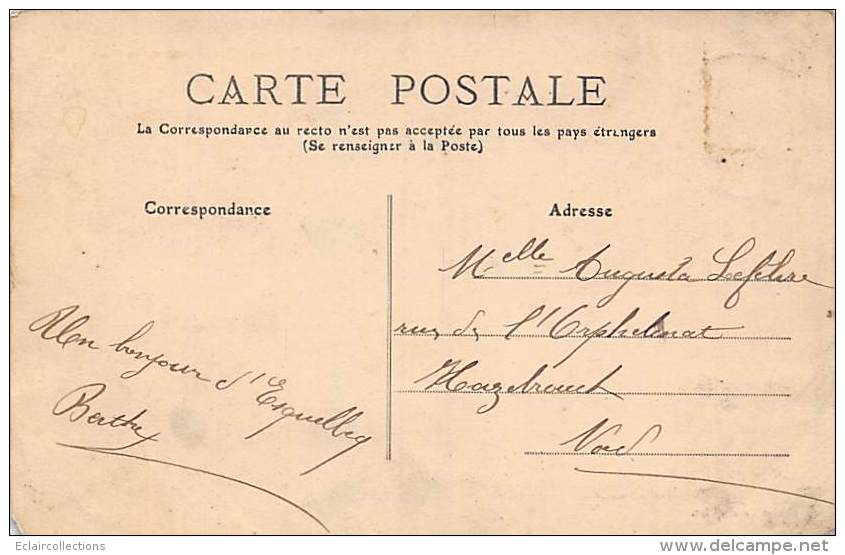 CARTE POSTALE
La Correspondance au recto n'est pas acceptée par tous les pays étrangers
(Se renseigner à la Poste)
Correspondance
Adresse
Melle Augusta Lefebvre
rue de l'Orphelinat
Hazebrouck
Nord
Un bonjour d'Esquelbecq
Berthe
Eclaircollections
www.delcampe.net